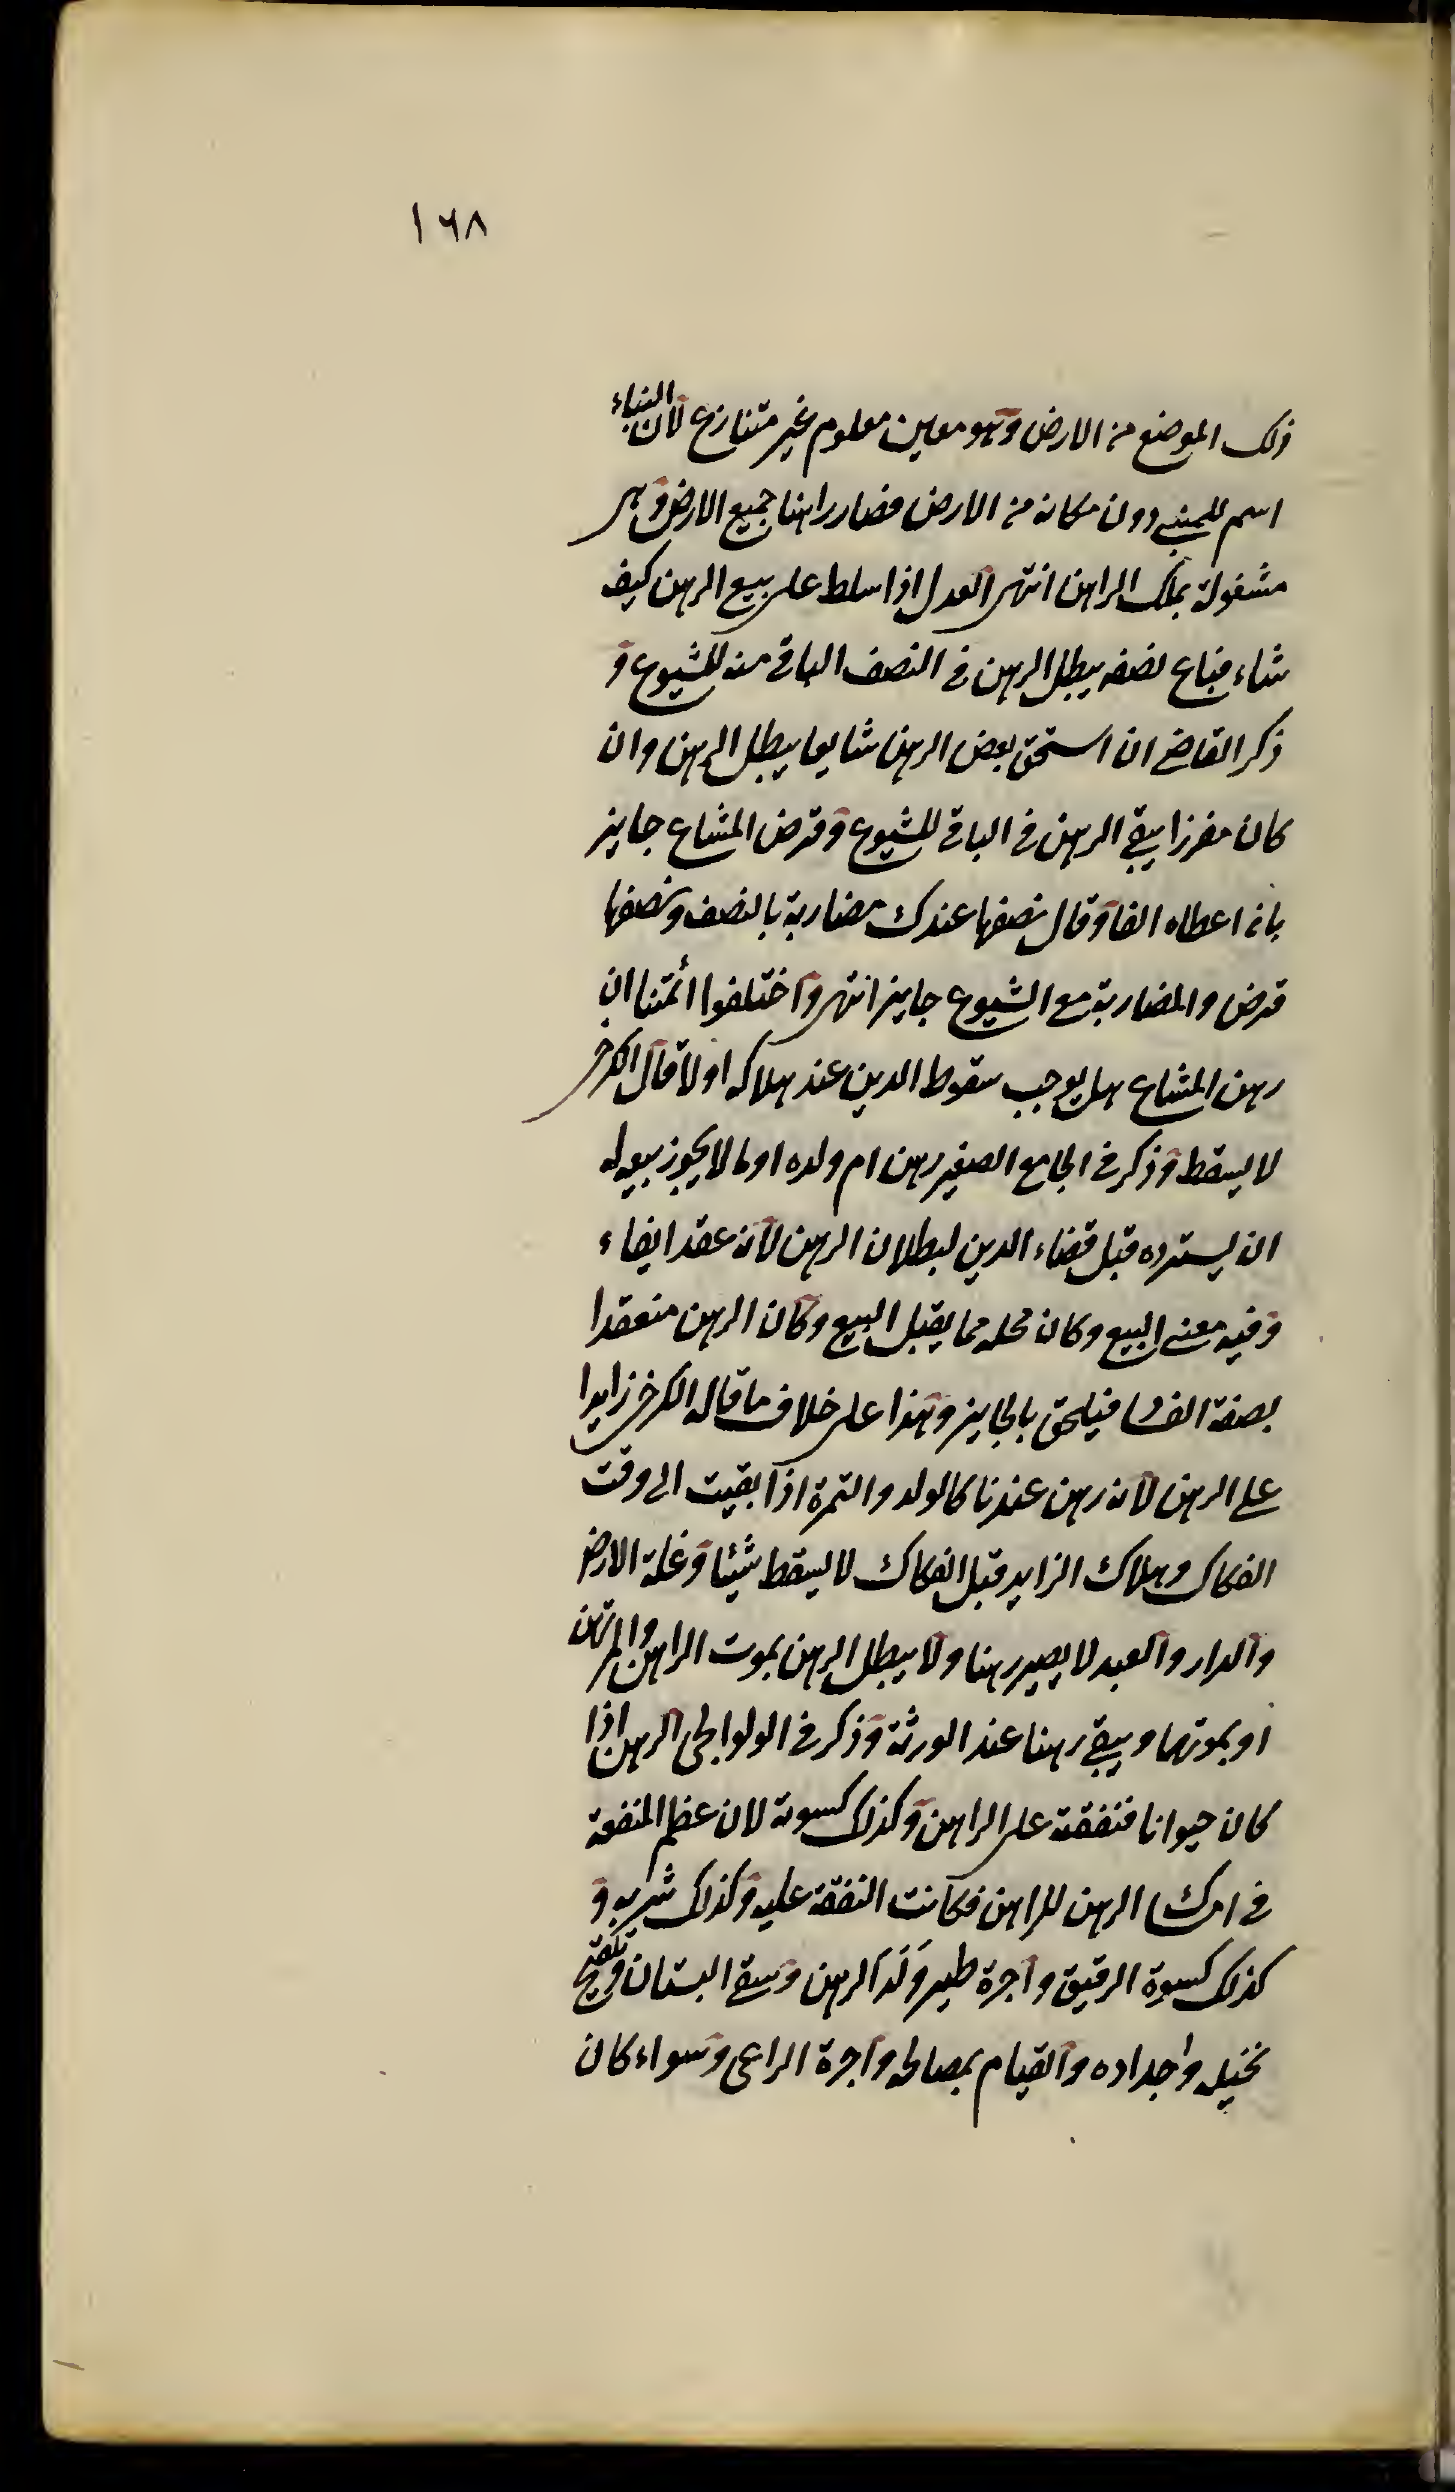 ١٦٨
ذلك الموضع من الارض وهو معين معلوم غير متنازع لان البناء
اسم للمبنى دون مكانه من الارض فصار راهنا جميع الارض وهى
مشغولة بملك الراهن انتهى العدل اذا سلط على بيع الرهن كيف
شاء فباع نصفه يبطل الرهن فى النصف الباقى منه للشيوع و
ذكر القاضى ان استحق بعض الرهن شايعا يبطل الرهن وان
كان مفرزا يبقى الرهن فى الباقى للشيوع وقرض المشاع جايز
بان اعطاه الفا وقال نصفها عندك مضاربة بالنصف ونصفها
قرض والمضاربة مع الشيوع جايز انتهى واختلفوا ائمتنا ان
رهن المشاع هل يوجب سقوط الدين عند هلاكه اولا قال الكرخى
لا يسقط وذكر فى الجامع الصغير رهن ام ولده او ما لا يجوز بيعه له
ان يسترده قبل قضاء الدين لبطلان الرهن لانه عقد ايفاء
وفيه معنى البيع وكان محله مما يقبل البيع وكان الرهن منعقدا
بصفة الفساد فيلحق بالجايز وهذا على خلاف ما قاله الكرخى زايدا
على الرهن لانه رهن عندنا كالولد والثمرة اذا بقيت الى وقت
الفكاك وهلاك الزايد قبل الفكاك لا يسقط شيئا وغلة الارض
والدار والعبد لا يصير رهنا ولا يبطل الرهن بموت الراهن والمرتهن
او بموتهما ويبقى رهنا عند الورثة وذكر فى الولوالجى الرهن اذا
كان حيوانا فنفقته على الراهن وكذلك كسوته لان عظم المنفعة
فى امساك الرهن للراهن فكانت النفقة عليه وكذلك شربه و
كذلك كسوة الرقيق واجرة ظير ولد الرهن وسقى البستان وتلقيح
نخيله واجداده والقيام بمصالحه واجرة الراعى وسواء كان